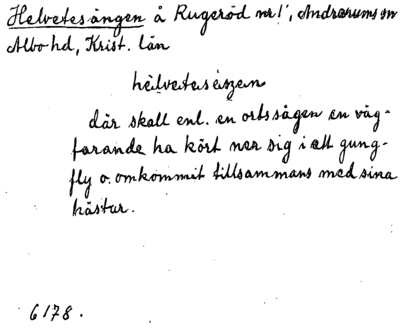 Helvetesängen å Rugeröd nr 1, Andrarums sn
Albo hd, Krist. län
hèlvetaséiŋen
där skall enl. en ortssägen en väg-
farande ha kört ner sig i ett gung-
fly o. omkommit tillsammans med sina
hästar.
6178.